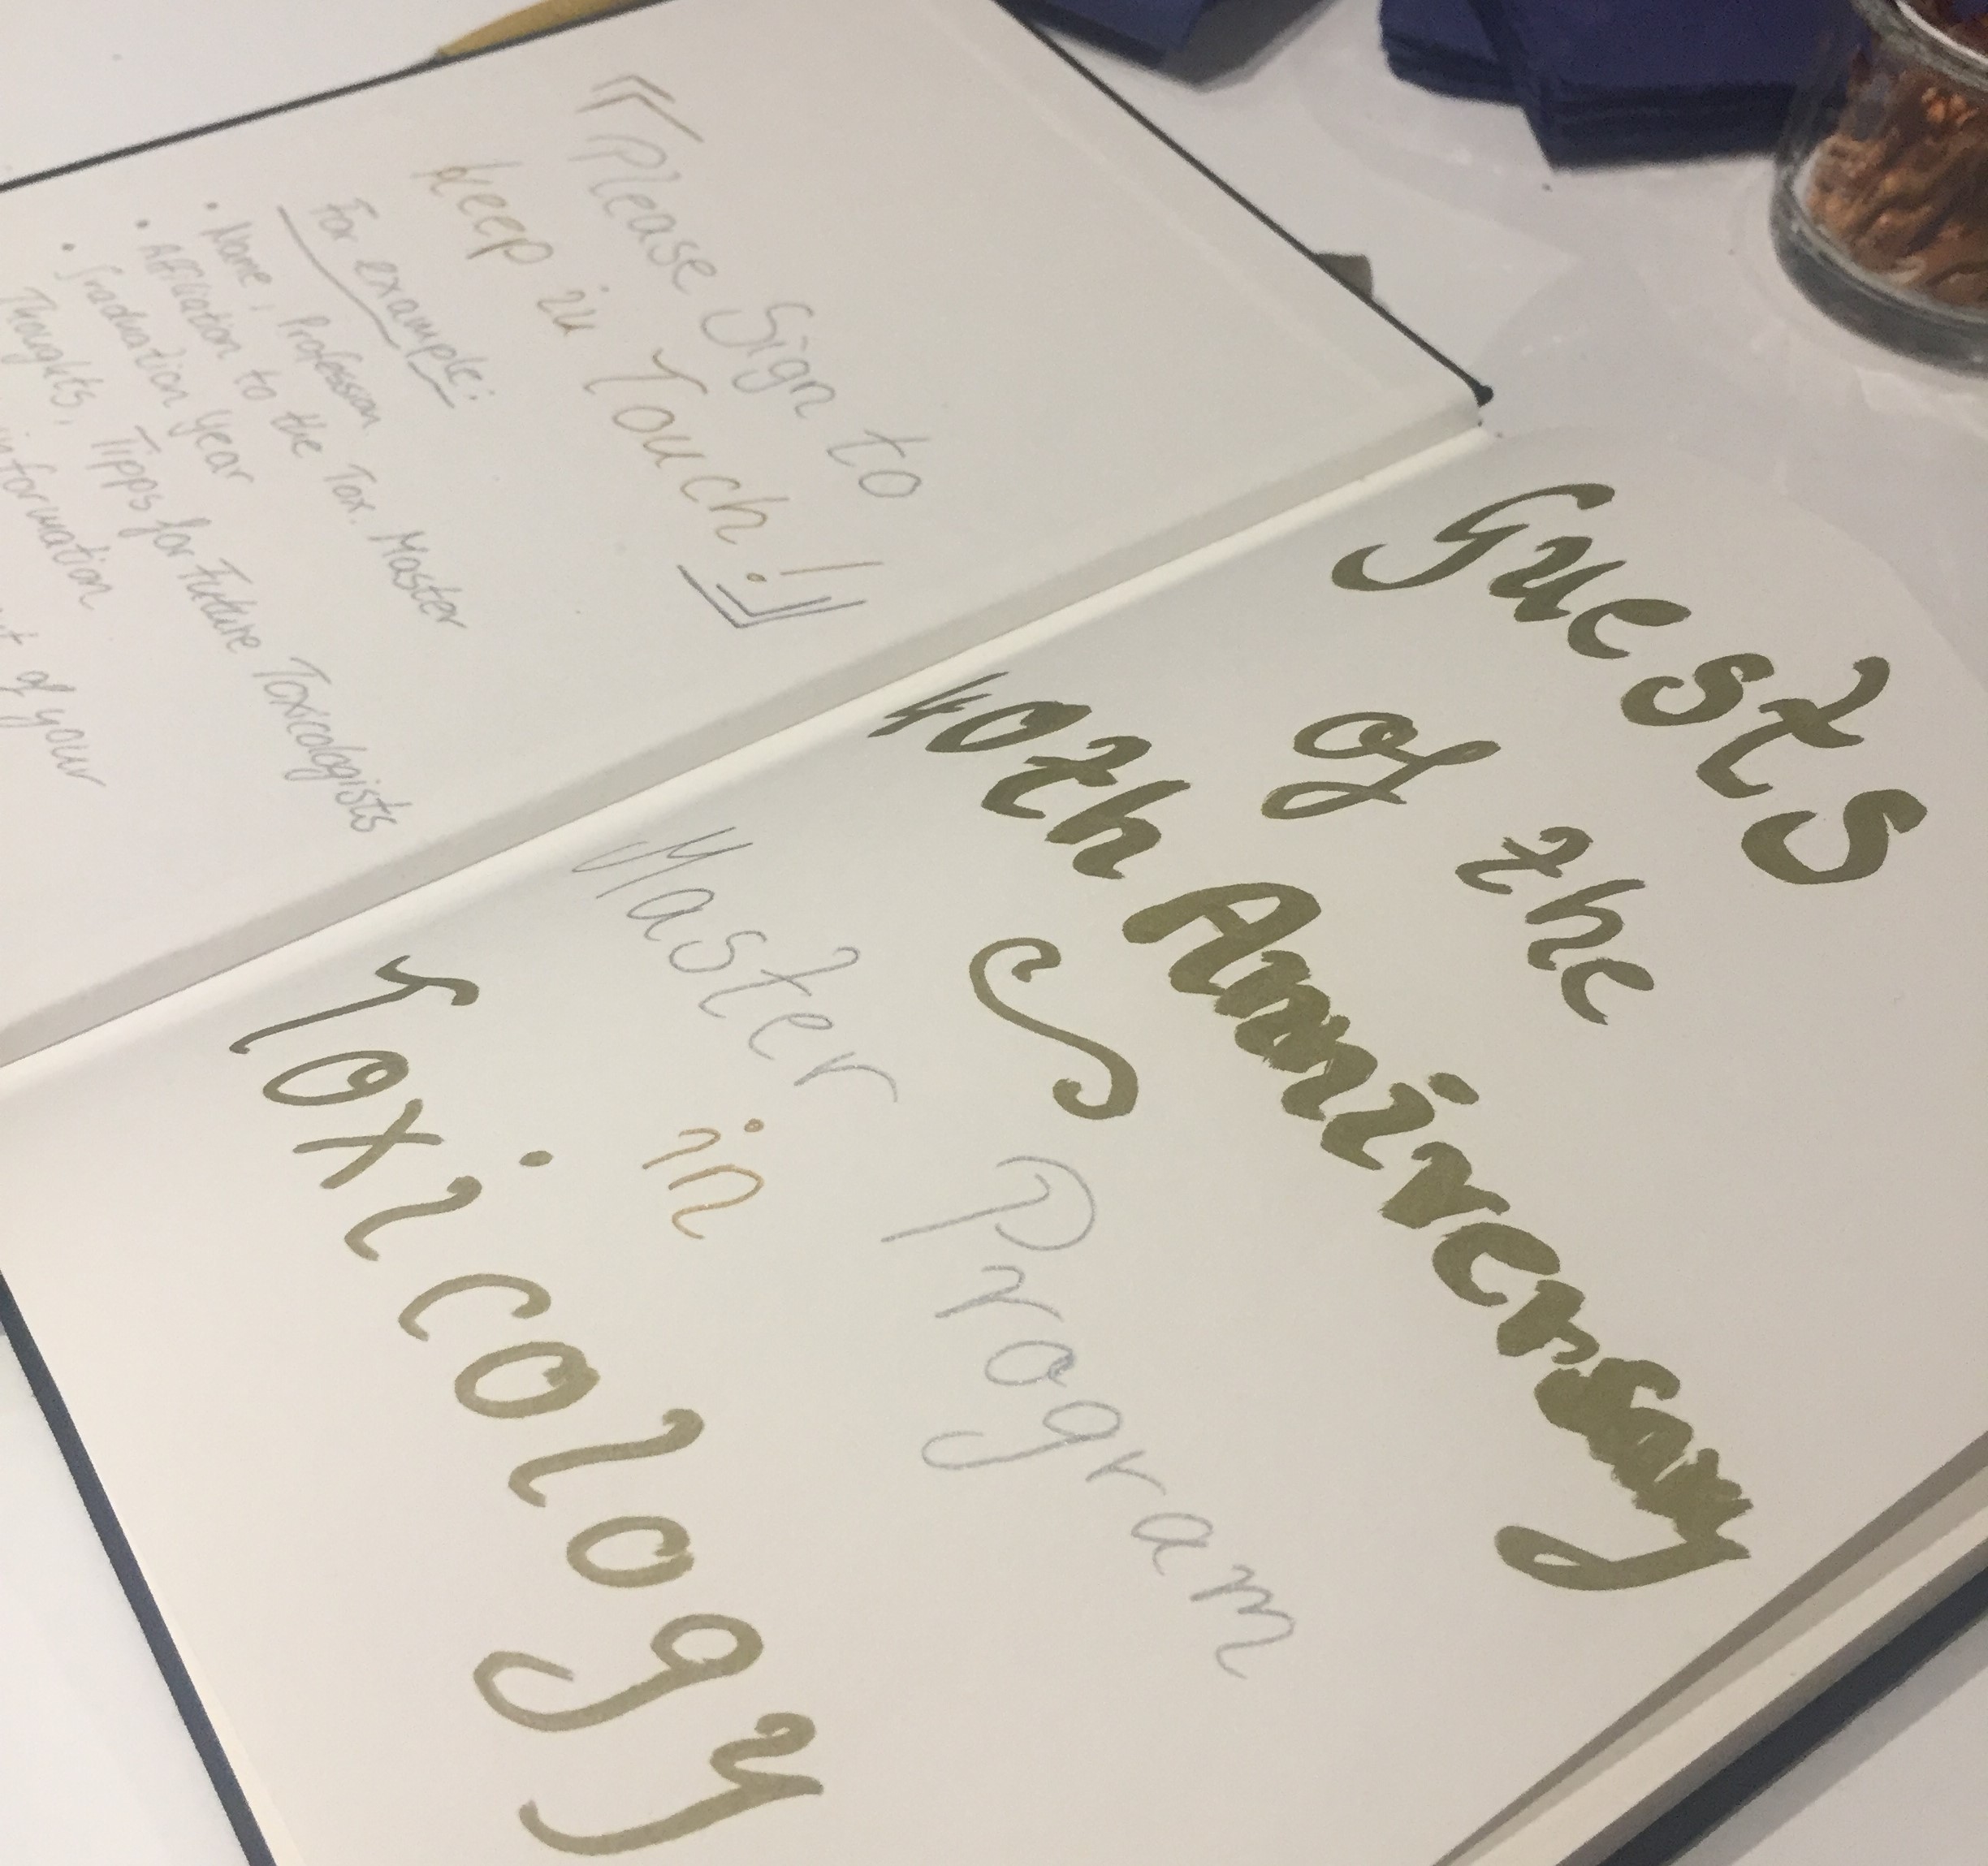 Please Sign to
keep in Touch!
For example:
• Name, Profession
• Affiliation to the Tox. Master
• Graduation Year
Thoughts, Tipps for Future Toxicologists
information
of your
Guests
of the
40th Anniversary
Master Program
in
Toxicology